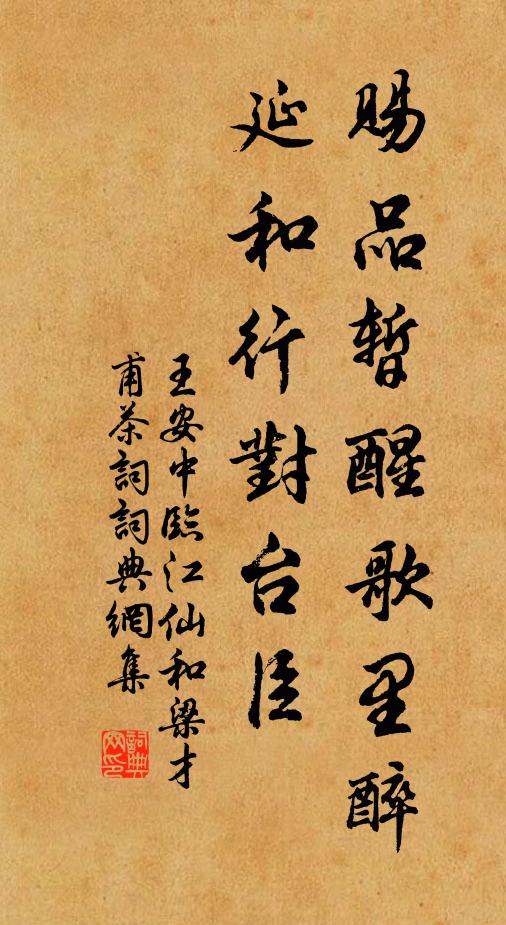 賜品暫醒歌里醉
延和行對台臣
王安中臨江仙和梁才
甫茶詞詞典網集
詞典網印